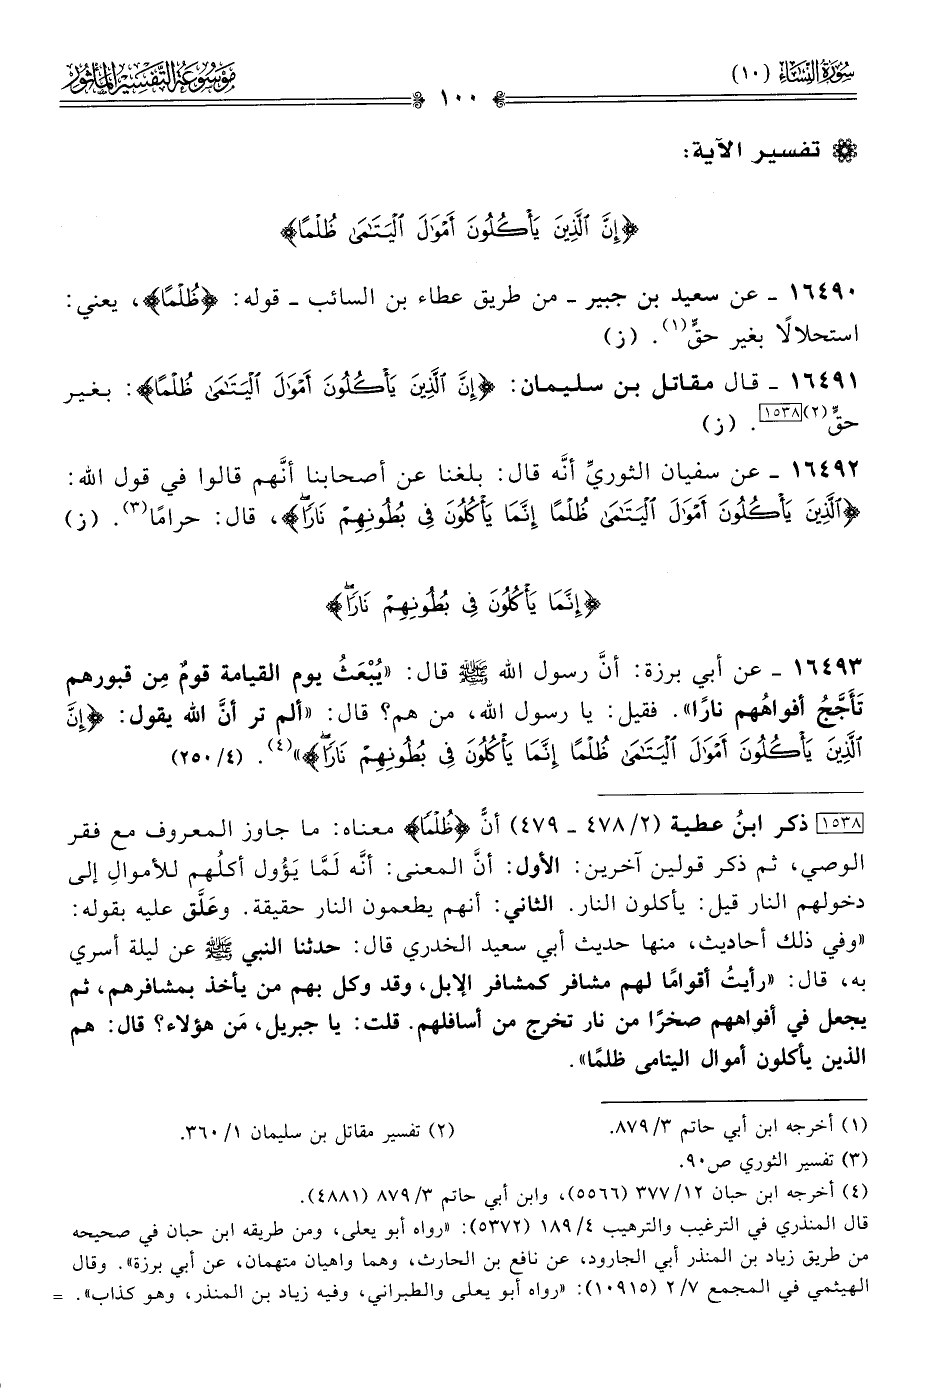 سُورَةُ النِّسَاءِ (١٠)
١٠٠
مَوْسُوعَةُ التَّفْسِيرِ المَأْثُورِ
تفسير الآية:
﴿إِنَّ ٱلَّذِينَ يَأۡكُلُونَ أَمۡوَٰلَ ٱلۡيَتَٰمَىٰ ظُلۡمًا﴾
١٦٤٩٠ ـ عن سعيد بن جبير ـ من طريق عطاء بن السائب ـ قوله: ﴿ظُلۡمًا﴾، يعني:
استحلالًا بغير حقٍّ(١). (ز)
١٦٤٩١ ـ قال مقاتل بن سليمان: ﴿إِنَّ ٱلَّذِينَ يَأۡكُلُونَ أَمۡوَٰلَ ٱلۡيَتَٰمَىٰ ظُلۡمًا﴾: بغير
حقٍّ(٢)[١٥٣٨]. (ز)
١٦٤٩٢ ـ عن سفيان الثوريِّ أنَّه قال: بلغنا عن أصحابنا أنَّهم قالوا في قول الله:
﴿ٱلَّذِينَ يَأۡكُلُونَ أَمۡوَٰلَ ٱلۡيَتَٰمَىٰ ظُلۡمًا إِنَّمَا يَأۡكُلُونَ فِي بُطُونِهِمۡ نَارٗاۖ﴾، قال: حرامًا(٣). (ز)
﴿إِنَّمَا يَأۡكُلُونَ فِي بُطُونِهِمۡ نَارٗاۖ﴾
١٦٤٩٣ ـ عن أبي برزة: أنَّ رسول الله ﷺ قال: «يُبْعَثُ يوم القيامة قومٌ مِن قبورهم
تَأَجَّجُ أفواهُهم نارًا». فقيل: يا رسول الله، من هم؟ قال: «ألم تر أنَّ الله يقول: ﴿إِنَّ
ٱلَّذِينَ يَأۡكُلُونَ أَمۡوَٰلَ ٱلۡيَتَٰمَىٰ ظُلۡمًا إِنَّمَا يَأۡكُلُونَ فِي بُطُونِهِمۡ نَارٗاۖ﴾»(٤). (٢٥٠/٤)
[١٥٣٨] ذكر ابنُ عطية (٤٧٨/٢ ـ ٤٧٩) أنَّ ﴿ظُلۡمًا﴾ معناه: ما جاوز المعروف مع فقر
الوصي، ثم ذكر قولين آخرين: الأول: أنَّ المعنى: أنه لَمَّا يَؤُول أكلُهم للأموالِ إلى
دخولهم النار قيل: يأكلون النار. الثاني: أنهم يطعمون النار حقيقة. وعَلَّق عليه بقوله:
«وفي ذلك أحاديث، منها حديث أبي سعيد الخدري قال: حدثنا النبي ﷺ عن ليلة أسري
به، قال: «رأيتُ أقوامًا لهم مشافر كمشافر الإبل، وقد وكل بهم من يأخذ بمشافرهم، ثم
يجعل في أفواههم صخرًا من نار تخرج من أسافلهم. قلت: يا جبريل، مَن هؤلاء؟ قال: هم
الذين يأكلون أموال اليتامى ظلمًا».
(١) أخرجه ابن أبي حاتم ٨٧٩/٣. (٢) تفسير مقاتل بن سليمان ٣٦٠/١.
(٣) تفسير الثوري ص٩٠.
(٤) أخرجه ابن حبان ٣٧٧/١٢ (٥٥٦٦)، وابن أبي حاتم ٨٧٩/٣ (٤٨٨١).
قال المنذري في الترغيب والترهيب ١٨٩/٤ (٥٣٧٢): «رواه أبو يعلى، ومن طريقه ابن حبان في صحيحه
من طريق زياد بن المنذر أبي الجارود، عن نافع بن الحارث، وهما واهيان متهمان، عن أبي برزة». وقال
الهيثمي في المجمع ٢/٧ (١٠٩١٥): «رواه أبو يعلى والطبراني، وفيه زياد بن المنذر، وهو كذاب». =